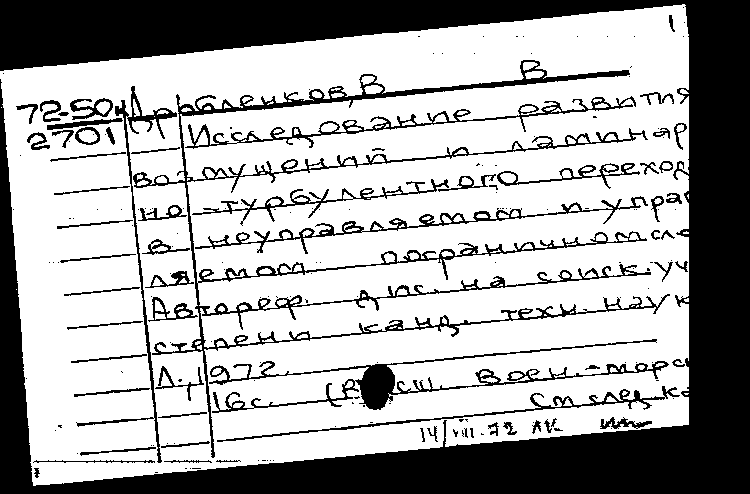 1
72-50н Драбленков, В В
2701 Исследование развития
возмущений и ламинар
но-турбулентного переход
в неуправляемом и управ
ляемом пограничном сло
Автореф. дис. на соиск. уч
степени канд. техн. наук
Л., 1972.
16 с. ( сш. Воен.-морс
См след ка
14/VIII.72 АК